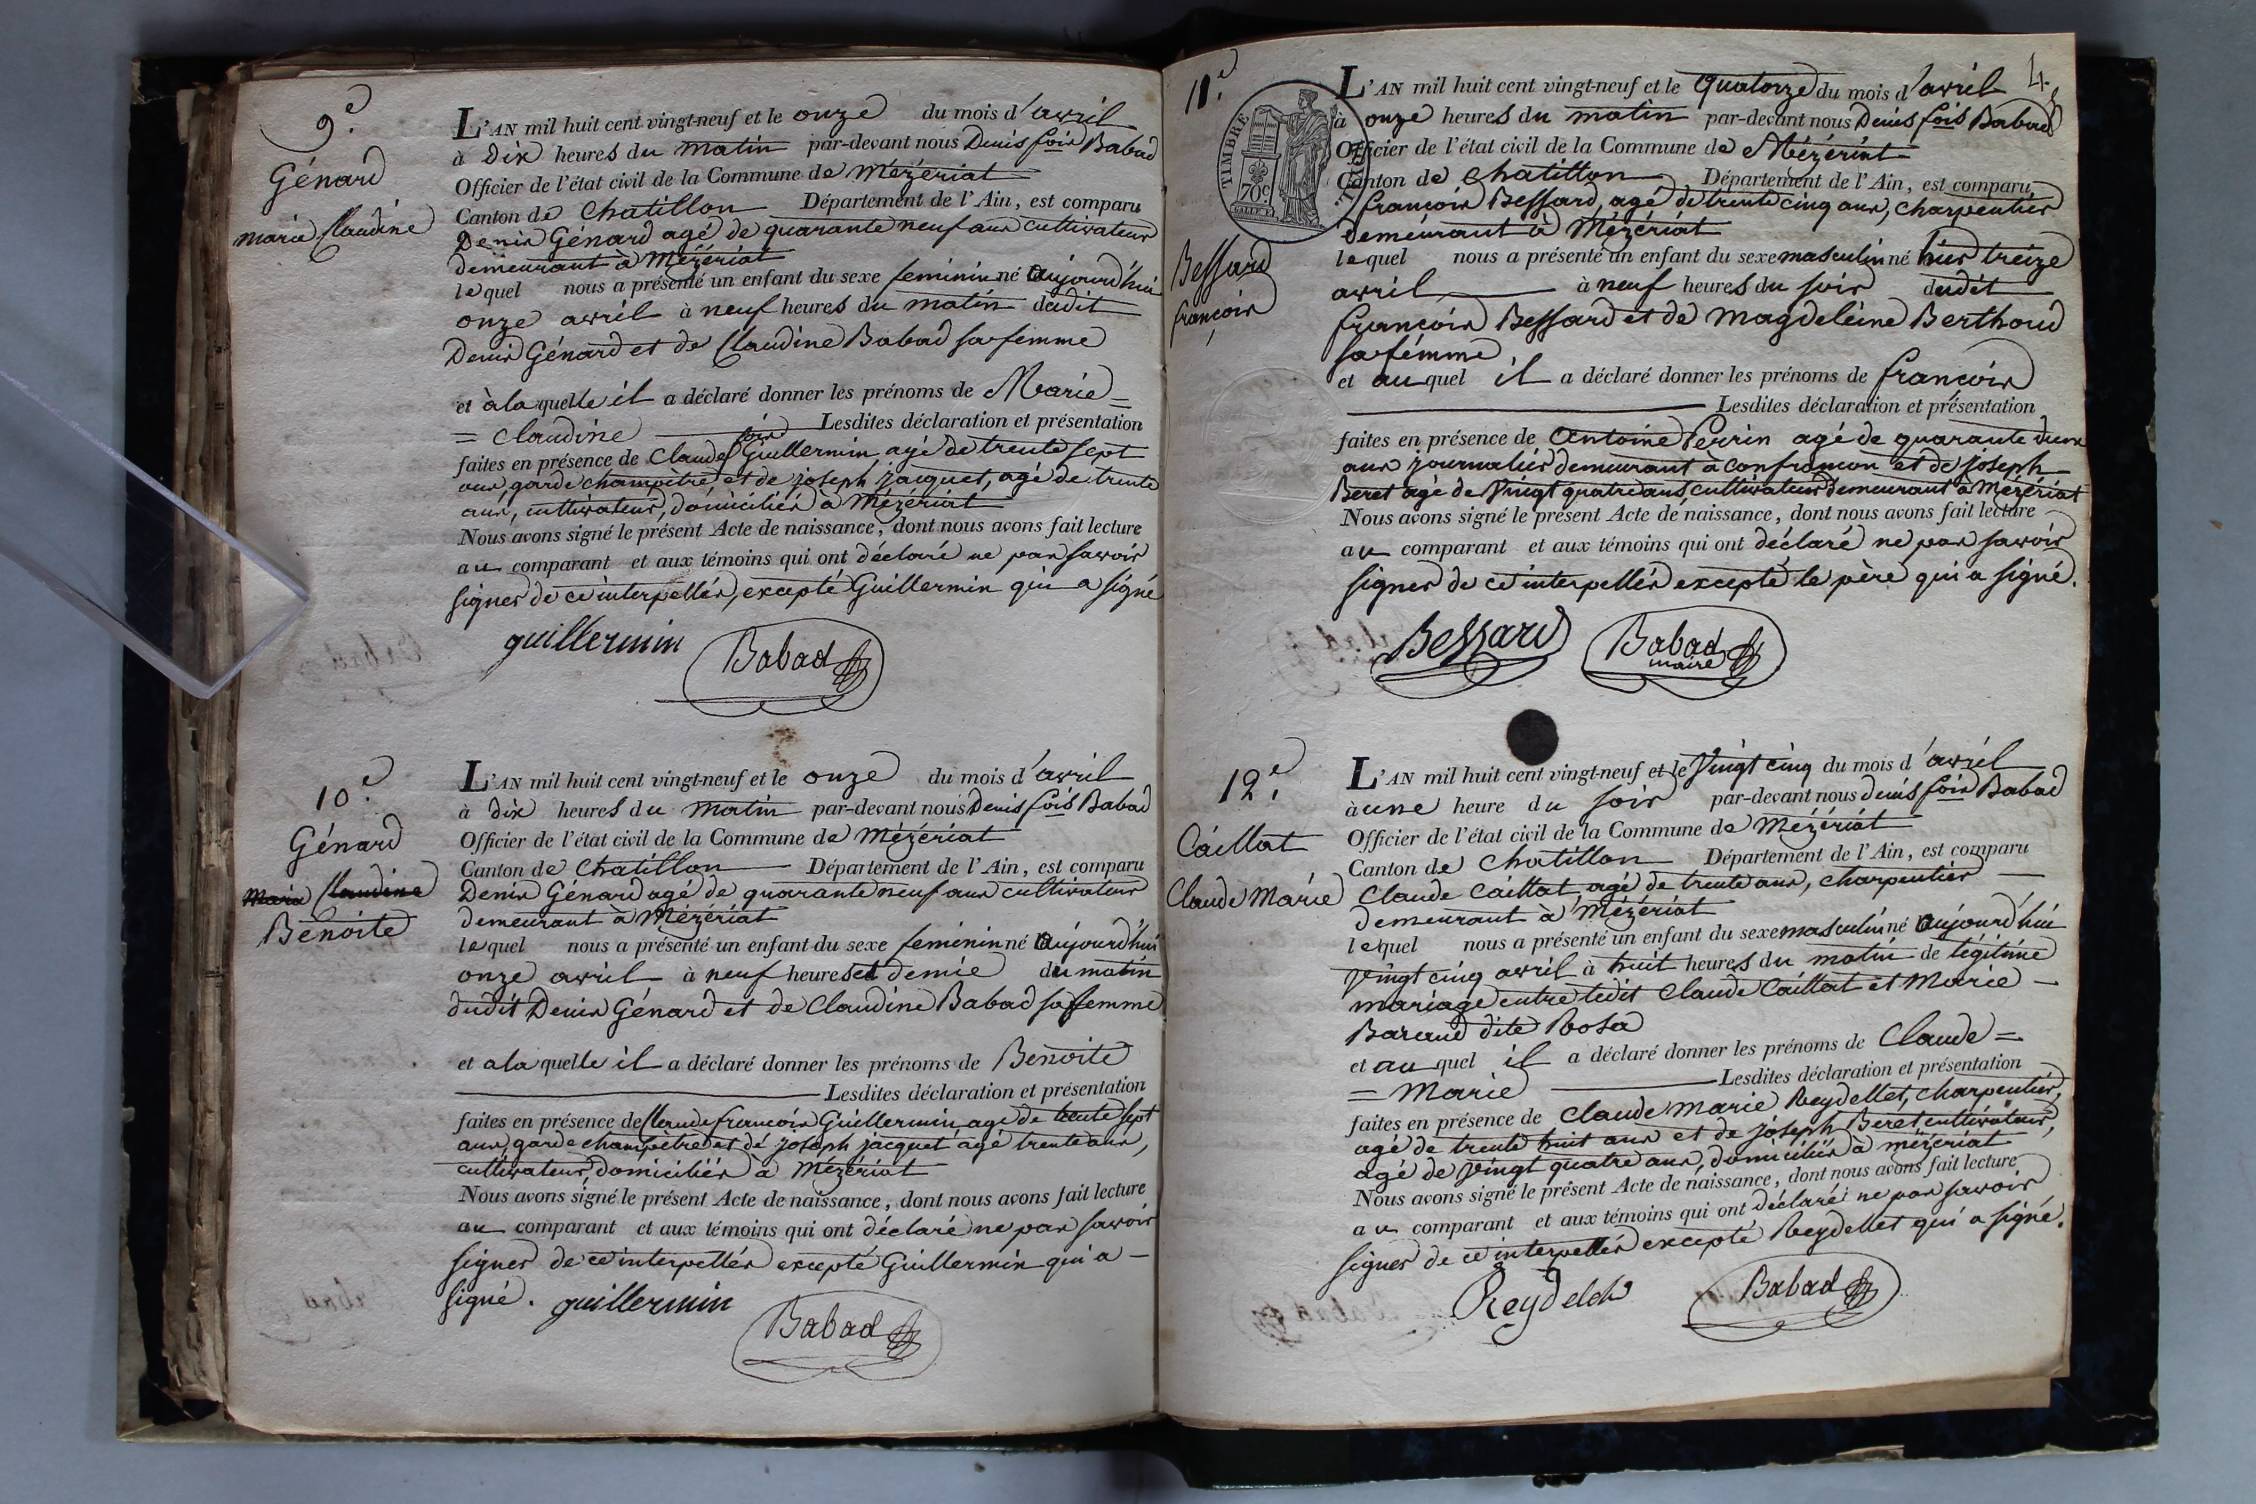 9.e
Génard
marie Claudine
L'AN mil huit cent vingt-neuf et le onze du mois d'avril
à dix heures du matin par-devant nous Denis fois Babad
Officier de l'état civil de la Commune de Mézériat
Canton de Chatillon Département de l'Ain, est comparu
Denis Génard agé de quarante neuf ans cultivateur
demeurant à Mézériat
lequel nous a présenté un enfant du sexe feminin né aujourd'hui
onze avril à neuf heures du matin dudit
Denis Génard et de Claudine Babad sa femme
et à la quelle il a déclaré donner les prénoms de Marie=
= Claudine Lesdites déclaration et présentation
fois
faites en présence de Claude Guillermin agé de trente sept
ans, garde champêtre et de joseph jacquet, agé de trente
ans, cultivateur, domiciliés à Mézériat
Nous avons signé le présent Acte de naissance, dont nous avons fait lecture
au comparant et aux témoins qui ont déclaré ne pas savoir
signer de ce interpellés, excepté Guillermin qui a signé
guillermin Babad
10.e
Génard
Marie Claudine
Benoite
L'AN mil huit cent vingt-neuf et le onze du mois d'avril
à dix heures du matin par-devant nous Denis fois Babad
Officier de l'état civil de la Commune de Mézériat
Canton de Chatillon Département de l'Ain, est comparu
Denis Génard agé de quarante neuf ans cultivateur
demeurant à Mézériat
lequel nous a présenté un enfant du sexe feminin né aujourd'hui
onze avril à neuf heures et demie du matin
dudit Denis Génard et de Claudine Babad sa femme
et a la quelle il a déclaré donner les prénoms de Benoite
Lesdites déclaration et présentation
faites en présence de Claude françois Guillermin agé de trente sept
ans, garde champêtre et de joseph jacquet agé trente ans,
cultivateur, domiciliés à Mézériat
Nous avons signé le présent Acte de naissance, dont nous avons fait lecture
au comparant et aux témoins qui ont déclaré ne pas savoir
signer de ce interpellés excepté Guillermin qui a
signé. guillermin Babad
4.
11.e
TIMBRE
70c
Bessard
françois
L'AN mil huit cent vingt-neuf et le quatorze du mois d'avril
à onze heures du matin par-devant nous Denis fois Babad
Officier de l'état civil de la Commune de Mézériat
Canton de Chatillon Département de l'Ain, est comparu
françois Bessard, agé de trente cinq ans, charpentier
demeurant à Mézériat
lequel nous a présenté un enfant du sexe masculin né hier treize
avril à neuf heures du soir dudit
françois Bessard et de Magdeleine Berthoud
sa femme
et au quel il a déclaré donner les prénoms de françois
Lesdites déclaration et présentation
faites en présence de Antoine Perrin agé de quarante deux
ans journalier demeurant à confrançon et de joseph
Beret agé de vingt quatre ans, cultivateur demeurant à Mézériat
Nous avons signé le présent Acte de naissance, dont nous avons fait lecture
au comparant et aux témoins qui ont déclaré ne pas savoir
signer de ce interpellés excepté le père qui a signé.
Bessard Babad
maire
12.e
Caillat
Claude Marie
L'AN mil huit cent vingt-neuf et le vingt cinq du mois d'avril
à une heure du soir par-devant nous Denis fois Babad
Officier de l'état civil de la Commune de Mézériat
Canton de Chatillon Département de l'Ain, est comparu
Claude Caillat, agé de trente ans, charpentier
demeurant à Mézériat
lequel nous a présenté un enfant du sexe masculin né aujourd'hui
vingt cinq avril à huit heures du matin de légitime
mariage entre ledit Claude Caillat et Marie
Baraud dite Rosa
et au quel il a déclaré donner les prénoms de Claude=
= Marie Lesdites déclaration et présentation
faites en présence de Claude Marie Reydellet, charpentier,
agé de trente huit ans et de joseph Beret cultivateur,
agé de vingt quatre ans, domiciliés à mézériat
Nous avons signé le présent Acte de naissance, dont nous avons fait lecture
au comparant et aux témoins qui ont déclaré ne pas savoir
signer de ce interpellés excepté Reydellet qui a signé.
Reydelet Babad